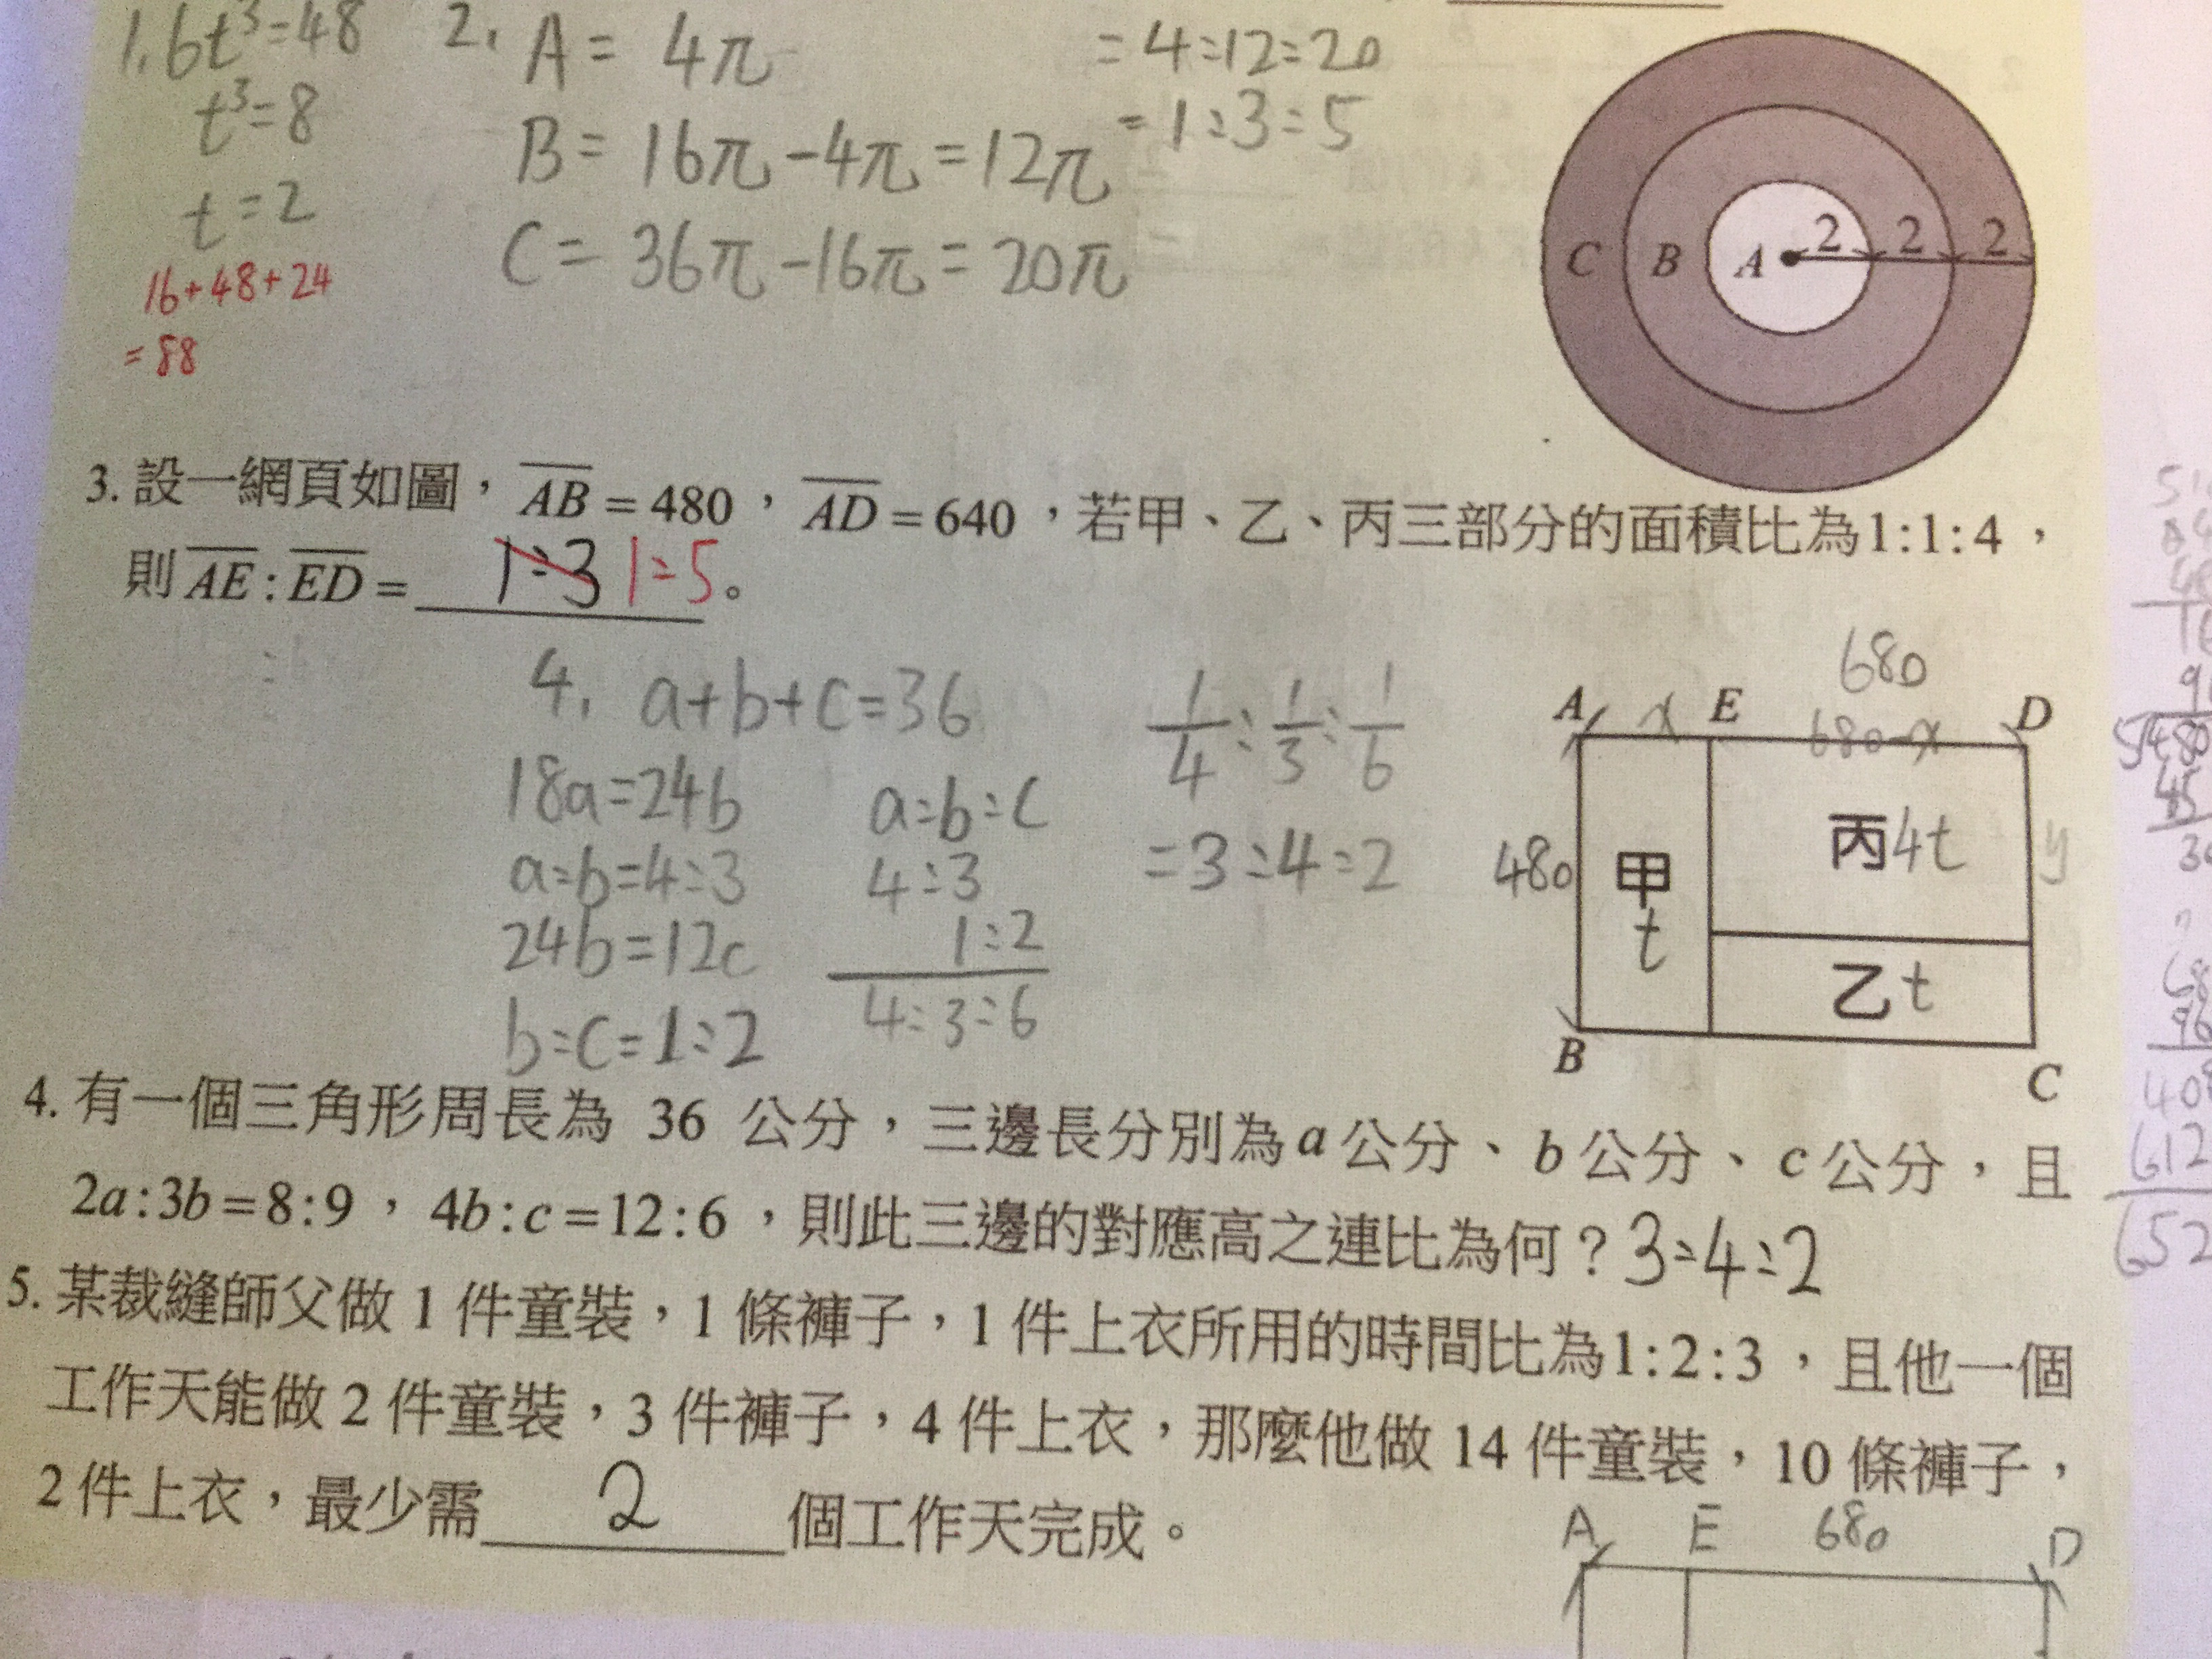 1. 6t³=48
t³=8
t=2
16+48+24
=88
2. A= 4π
B= 16π-4π=12π
C= 36π-16π=20π
=4:12:20
=1:3:5
C B A 2 2 2
3. 設一網頁如圖，AB=480，AD=640，若甲、乙、丙三部分的面積比為1:1:4，
則AE:ED= 1:3 1:5。
4. a+b+c=36
18a=24b
a:b=4:3
24b=12c
b:c=1:2
a:b:c
4:3
1:2
4:3:6
1/4:1/3:1/6
=3:4:2
680
A x E 680-x D
480 甲 t 丙4t y
乙t
B C
4. 有一個三角形周長為 36 公分，三邊長分別為a公分、b公分、c公分，且
2a:3b=8:9，4b:c=12:6，則此三邊的對應高之連比為何？3:4:2
5. 某裁縫師父做1件童裝，1條褲子，1件上衣所用的時間比為1:2:3，且他一個
工作天能做2件童裝，3件褲子，4件上衣，那麼他做14件童裝，10條褲子，
2件上衣，最少需 2 個工作天完成。
A E 680 D
612
652